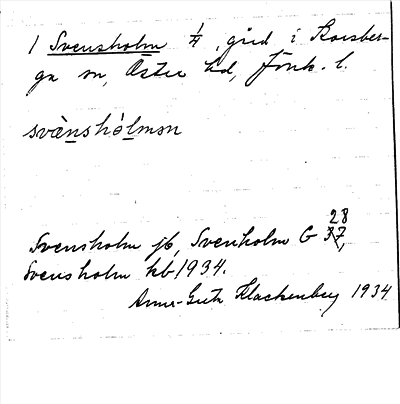 1 Svensholm 1/4, gård i Korsber-
ga sn, Östra hd, Jönk. l.
svὲnshólmən
28
Svensholm jb, Svenholm G 37,
Svensholm kb 1934.
Anna-Greta Hlackenberg 1934